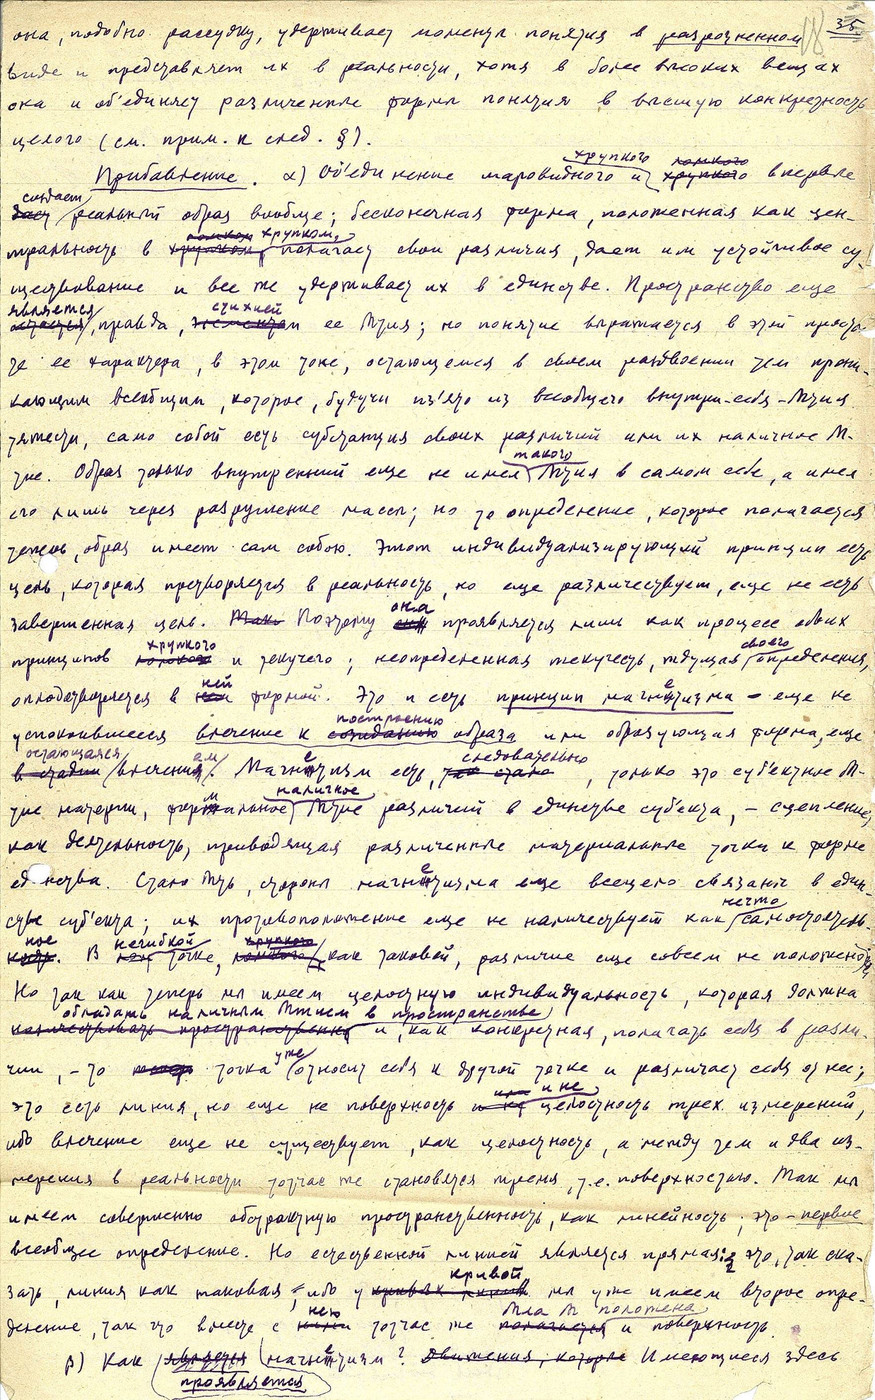 35.
18
она, подобно рассудку, удерживает моменты понятия в разрозненном
виде и представляет их в реальности, хотя в более высоких вещах
она и об'единяет различенные формы понятия в высшую конкретность
целого (см. прим. к след. §).
хрупкого ломкого
Прибавление. α) Об'единение шаровидного и хрупкого впервые
создает
дает реальный образ вообще; бесконечная форма, положенная как цен-
ломком хрупком,
тральность в хрупком, полагает свои различия, дает им устойчивое су-
ществование и все же удерживает их в единстве. Пространство еще
является стихией
остается, правда, элементом ее Мтия; но понятие выражается в этой просто-
те ее характера, в этом тоне, остающемся в своем раздвоении тем прони-
кающим всеобщим, которое, будучи из'ято из всеобщего внутри-себя-Мтия
тяжести, само собой есть субстанция своих различий или их наличное М-
такого
тие. Образ только внутренний еще не имел Мтия в самом себе, а имел
его лишь через разрушение массы; но то определение, которое полагается
теперь, образ имеет сам собою. Этот индивидуализирующий принцип есть
цель, которая претворяется в реальность, но еще различествует, еще не есть
она
завершенная цель. Так Поэтому проявляется лишь как процесс обоих
хрупкого своего
принципов ломкого и текучего; неопределенная текучесть, ждущая определения,
ней
оплодотворяется в формой. Это и есть принцип магнетизма – еще не
построению
успокоившееся влечение к созиданию образа или образующая форма, еще
остающаяся ем следовательно
в стадии влечения. Магнетизм есть, так стало, только это суб'ектное М-
наличное
тие материи, формальное Мтие различий в единстве суб'екта, – сцепление,
как деятельность, приводящая различенные материальные точки к форме
единства. Стало Мть, стороны магнетизма еще всецело связаны в един-
нечто
стве суб'екта; их противоположение еще не наличествует как самостоятель-
ное негибкой хрупкого
В точке, ломкого как таковой, различие еще совсем не положено
Но так как теперь мы имеем целостную индивидуальность, которая должна
обладать наличным Мтием в пространстве
наличествовать пространственно и, как конкретная, полагать себя в разли-
уже
чии, – то точка относит себя к другой точке и различает себя от нее;
или и не
это есть линия, но еще не поверхность целостность трех измерений,
ибо влечение еще не существует, как целостность, а между тем и два из-
мерения в реальности тотчас же становятся тремя, т.е. поверхностью. Так мы
имеем совершенно абстрактную пространственность, как линейность; это – первое
всеобщее определение. Но естественной линией является прямая; это, так ска-
кривой
зать, линия как таковая, ибо у кривых линий мы уже имеем второе опре-
нею Мла М положена
деление, так что вместе с тотчас же полагается и поверхность.
β) Как является магнетизм? Движения, которые Имеющиеся здесь
проявляется